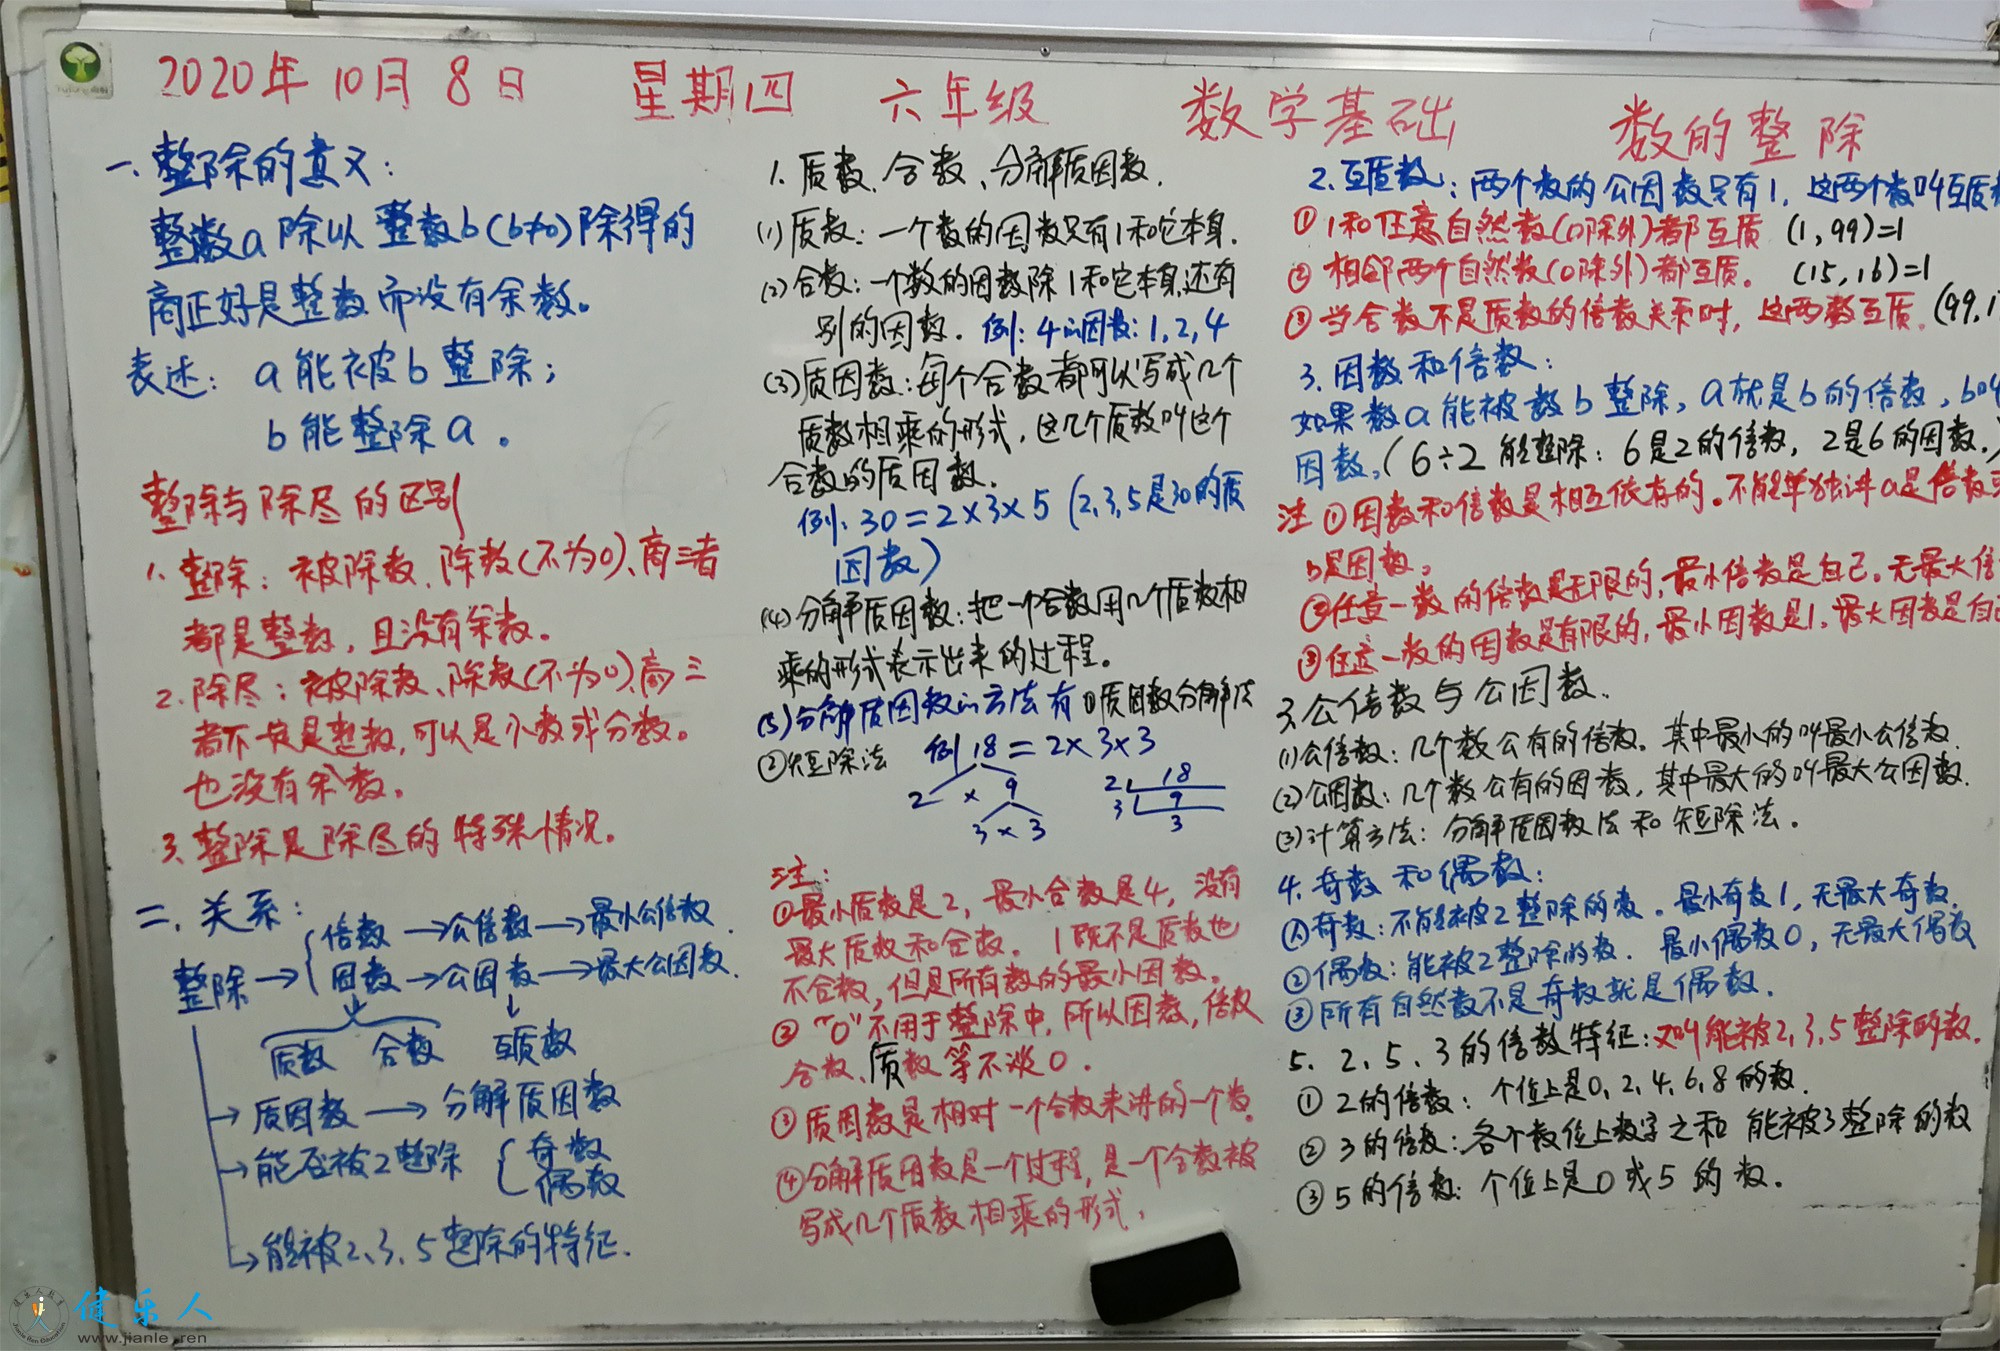 2020年10月8日 星期四 六年级 数学基础 数的整除
一.整除的意义:
整数a除以整数b(b≠0)除得的
商正好是整数而没有余数。
表述: a能被b整除;
b能整除a。
整除与除尽的区别
1.整除:被除数、除数(不为0)、商三者
都是整数,且没有余数。
2.除尽:被除数、除数(不为0)、商三
者不一定是整数,可以是小数或分数。
也没有余数。
3.整除是除尽的特殊情况。
二.关系:
倍数→公倍数→最小公倍数.
整除→{因数→公因数→最大公因数.
质数 合数 互质数
→质因数→分解质因数
→能否被2整除{奇数
偶数
→能被2、3、5整除的特征.
1.质数、合数、分解质因数.
(1)质数:一个数的因数只有1和它本身.
(2)合数:一个数的因数除1和它本身还有
别的因数.例:4的因数:1,2,4
(3)质因数:每个合数都可以写成几个
质数相乘的形式,这几个质数叫这个
合数的质因数.
例:30=2×3×5(2,3,5是30的质
因数)
(4)分解质因数:把一个合数用几个质数相
乘的形式表示出来的过程。
(5)分解质因数的方法有①质因数分解法
②短除法 例18=2×3×3
2 × 9
3×3
2 18
3 9
3
注:
①最小质数是2,最小合数是4,没有
最大质数和合数。1既不是质数也
不合数,但是所有数的最小因数。
②"0"不用于整除中,所以因数,倍数
合数、质数等不谈0.
③质因数是相对一个合数来讲的一个数.
④分解质因数是一个过程,是一个合数被
写成几个质数相乘的形式.
2.互质数:两个数的公因数只有1,这两个数叫互质
①1和任意自然数(0除外)都互质 (1,99)=1
②相邻两个自然数(0除外)都互质。 (15,16)=1
③当合数不是质数的倍数关系时,这两数互质.(99,1
3.因数和倍数:
如果数a能被数b整除,a就是b的倍数,b叫
因数。(6÷2能整除:6是2的倍数,2是6的因数.)
注①因数和倍数是相互依存的。不能单独讲a是倍数
b是因数。
②任意一数的倍数是无限的,最小倍数是自己.无最大倍
③任意一数的因数是有限的,最小因数是1,最大因数是自己
3.公倍数与公因数.
(1)公倍数:几个数公有的倍数。其中最小的叫最小公倍数.
(2)公因数:几个数公有的因数,其中最大的叫最大公因数.
(3)计算方法:分解质因数法和短除法.
4.奇数和偶数:
①奇数:不能被2整除的数.最小奇数1,无最大奇数.
②偶数:能被2整除的数.最小偶数0,无最大偶数
③所有自然数不是奇数就是偶数.
5.2、5、3的倍数特征:又叫能被2,3,5整除的数.
①2的倍数:个位上是0,2,4,6,8的数.
②3的倍数:各个数位上数字之和能被3整除的数
③5的倍数:个位上是0或5的数.
健乐人
www.jianle.ren